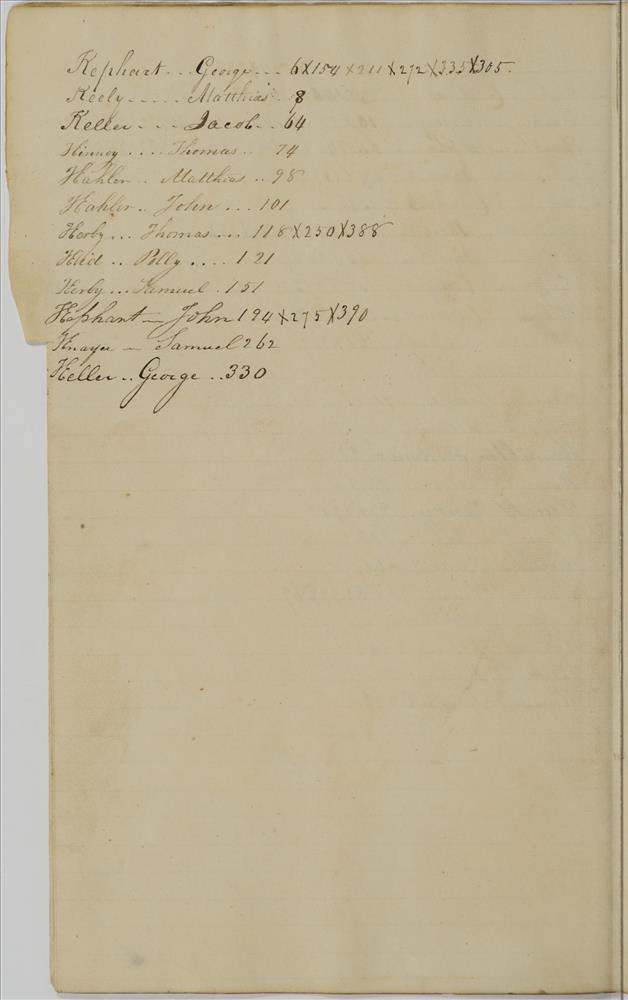 Kephart... George... 6 X 154 X 211 X 272 X 335 X 305.
Keely..... Matthias 8
Keller... Jacob.. 64
Kinney.... Thomas.. 74
Kahler.. Matthias.. 98
Kahler.. John... 101
Kerby... Thomas... 118 X 250 X 388
Polly.... 121
Kerby... Samuel. 151
Kephart — John 194 X 275 X 390
Samuel 262
Keller.. George.. 330